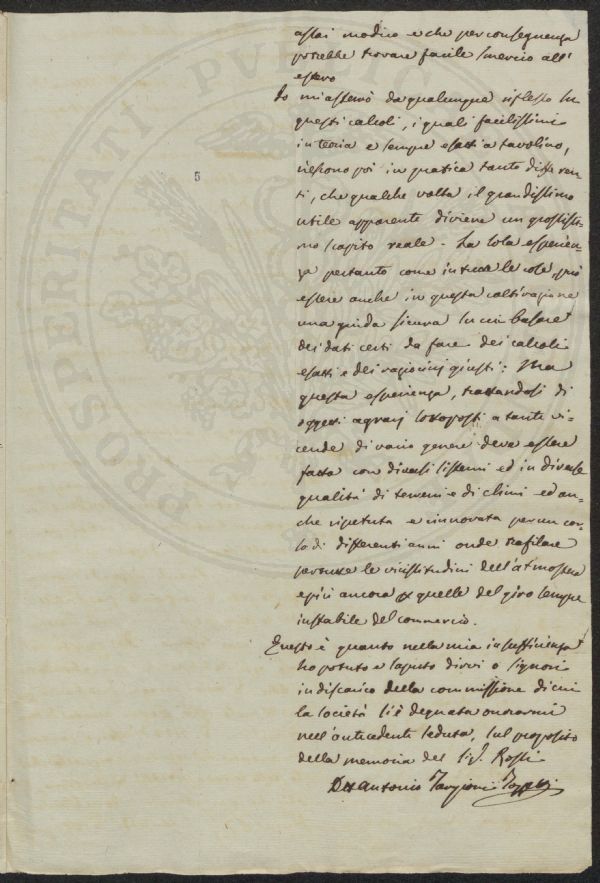 assai modico e che per conseguenza
potrebbe trovare facile smercio all'
estero
Io mi asterrò da qualunque riflesso su
questi calcoli, i quali facilissimi
in teoria e sempre esatti a tavolino,
riescono poi in pratica tanto differen-
ti, che qualche volta il grandissimo
utile apparente diviene un grossissi-
mo scapito reale. La sola esperien-
za pertanto come in tutte le cose può
essere anche in questa coltivazione
una guida sicura su cui basare
dei dati certi da fare dei calcoli
esatti e dei raziocinj giusti: Ma
questa esperienza, trattandosi di
oggetti agrarj sottoposti a tante vi=
cende di vario genere deve essere
fatta con diversi sistemi ed in diverse
qualità di terreni e di climi ed an-
che ripetuta e rinnovata per un cor-
so di differenti anni onde
per tutte le vicissitudini dell'atmosfera
e più ancora quelle del giro sempre
instabile del commercio.
Questo è quanto nella mia insufficienza
ho potuto e saputo dirvi o signori
in discarico della commissione di cui
la società si è degnata onorarmi
nell'antecedente seduta, sul proposito
della memoria del Sig. Rossi
Dott Antonio Targioni Tozzetti
PROSPERITATI PUBLICAE
5